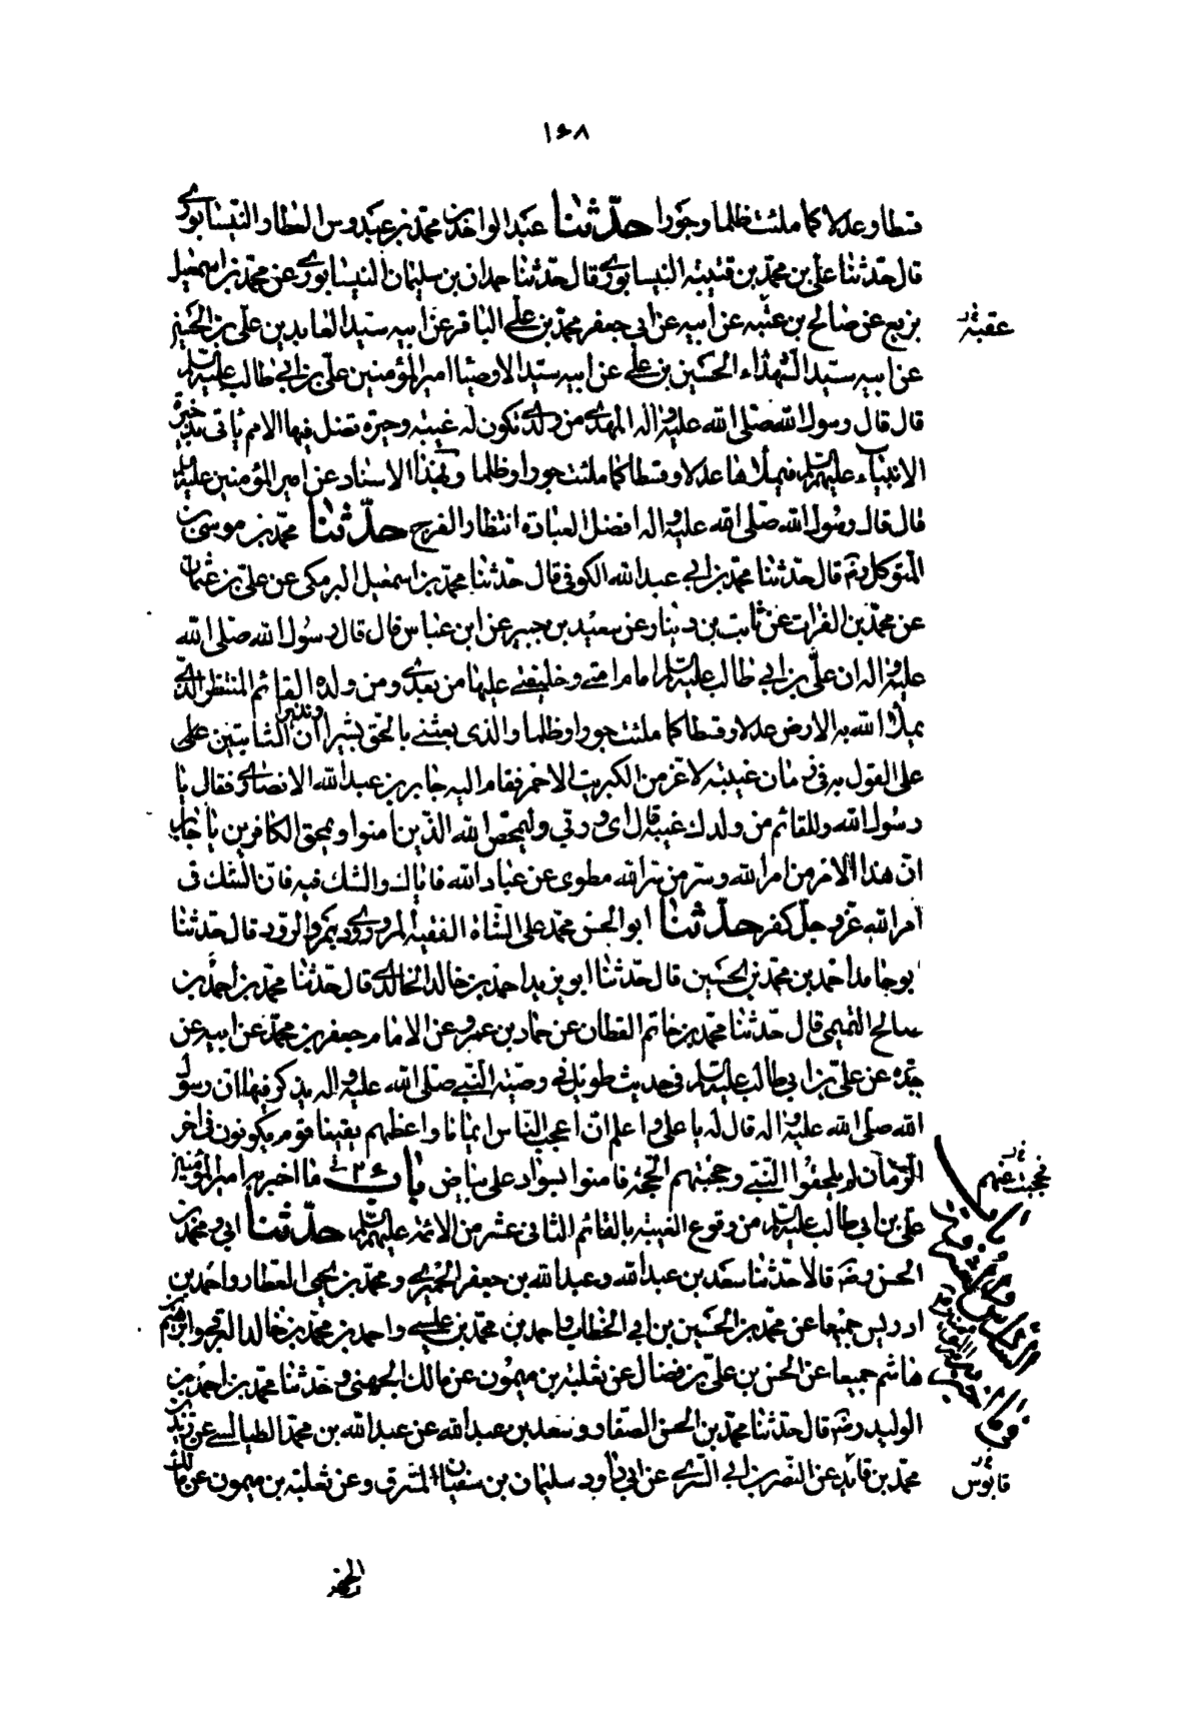 ١٦٨
قسطا وعدلا كما ملئت ظلما وجورا حدثنا عبد الواحد بن محمد بن عبدوس العطار النيسابوري
قال حدثنا علي بن محمد بن قتيبه النيسابوري قال حدثنا حمدان بن سليمان النيسابوري عن محمد بن اسمعيل
بزيع عن صالح بن عقبه عن ابيه عن ابي جعفر محمد بن علي الباقر عن ابيه سيد العابدين علي بن الحسين
عقبة
عن ابيه سيد الشهداء الحسين بن علي عن ابيه سيد الاوصيا امير المؤمنين علي بن ابي طالب عليه السلام
قال قال رسول الله صلى الله عليه واله المهدي من ولدي تكون له غيبه وحيرة تضل فيها الامم ياتي بذخيرة
الانبياء عليهم السلام فيملاها عدلا وقسطا كما ملئت جورا وظلما وبهذا الاسناد عن امير المؤمنين عليه السلام
قال قال رسول الله صلى الله عليه واله افضل العبادة انتظار الفرج حدثنا محمد بن موسى بن
المتوكل رضه قال حدثنا محمد بن ابي عبد الله الكوفي قال حدثنا محمد بن اسمعيل البرمكي عن علي بن عثمان
عن محمد بن الفرات عن ثابت بن دينار عن سعيد بن جبير عن ابن عباس قال قال رسول الله صلى الله
عليه واله ان علي بن ابي طالب عليه السلام امام امتي وخليفتي عليها من بعدي ومن ولده القائم المنتظر الذي
يملأ الله به الارض عدلا وقسطا كما ملئت جورا وظلما والذي بعثني بالحق بشيرا ونذيرا ان الثابتين على
على القول به في زمان غيبته لاعز من الكبريت الاحمر فقام اليه جابر بن عبد الله الانصاري فقال يا
رسول الله وللقائم من ولدك غيبة قال اي وربي وليمحص الله الذين امنوا ويمحق الكافرين يا جابر
ان هذا الامر من امر الله وسر من سر الله مطوي عن عباد الله فاياك والشك فيه فان الشك في
امر الله عز وجل كفر حدثنا ابو الحسن محمد علي الشاة الفقيه المروزي بمرو الرود قال حدثنا
بو حامد احمد بن محمد بن الحسين قال حدثنا ابو يزيد احمد بن خالد الخالدي قال حدثنا محمد بن احمد بن
صالح التميمي قال حدثنا محمد بن حاتم القطان عن حماد بن عمرو عن الامام جعفر بن محمد عن ابيه عن
جده عن علي بن ابي طالب عليه السلام في حديث طويل في وصية النبي صلى الله عليه واله يذكر فيها ان رسول
الله صلى الله عليه واله قال له يا علي واعلم ان اعجب الناس ايمانا واعظمهم يقينا قوم يكونون في اخر
الزمان لم يلحقوا النبي وحجبتهم الحجة فامنوا بسواد على بياض باب ما اخبر به امير المؤمنين
علي بن ابي طالب عليه السلام من وقوع الغيبه بالقائم الثاني عشر من الائمه عليهم السلام حدثنا ابي ومحمد بن
الحسن رضه قالا حدثنا سعد بن عبد الله وعبد الله بن جعفر الحميري ومحمد بن يحيى العطار واحمد بن
ادريس جميعا عن محمد بن الحسين بن ابي الخطاب واحمد بن محمد بن عيسى واحمد بن محمد بن خالد البرقي وابراهيم بن
هاشم جميعا عن الحسن بن علي بن فضال عن ثعلبة بن ميمون عن مالك الجهني وحدثنا محمد بن احمد بن
الوليد رضه قال حدثنا محمد بن الحسن الصفار وسعد بن عبد الله عن عبد الله بن محمد الطيالسي عن زيد بن
محمد بن قائد عن النصر بن ابي السري عن ابي داود سليمان بن سفيان المسترق وعن ثعلبة بن ميمون عن مالك
قابوس